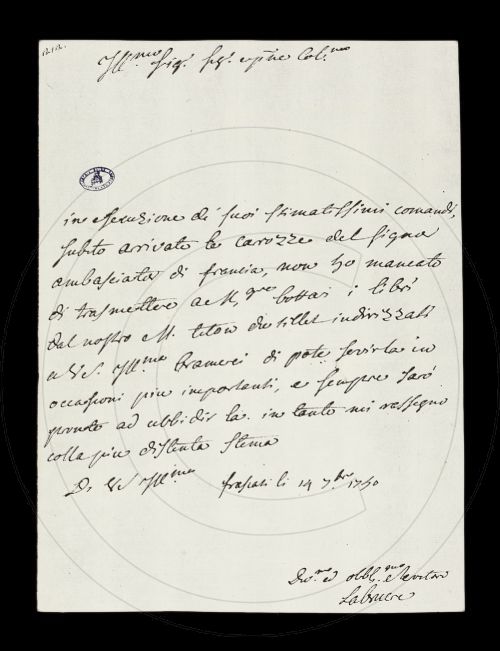 Ill.mo Sig.r Sig.r e Col.mo
in esecuzione di suoi stimatissimi comandi,
subito arrivate le carozze del Signor
ambasciator di francia, non ho mancato
di trasmettere a M.gre bottari i libri
dal nostro M. titon du tillet indirizzati
a VS. Ill.ma bramerei di poter servirla in
occasioni piu importanti, e sempre sarò
pronto ad ubbidirla. in tanto mi rassegno
colla piu distinta stima
Di VS Ill.ma frascati li 14 7bre 1750
Div.mo ed obbl.mo servitore
Labruere